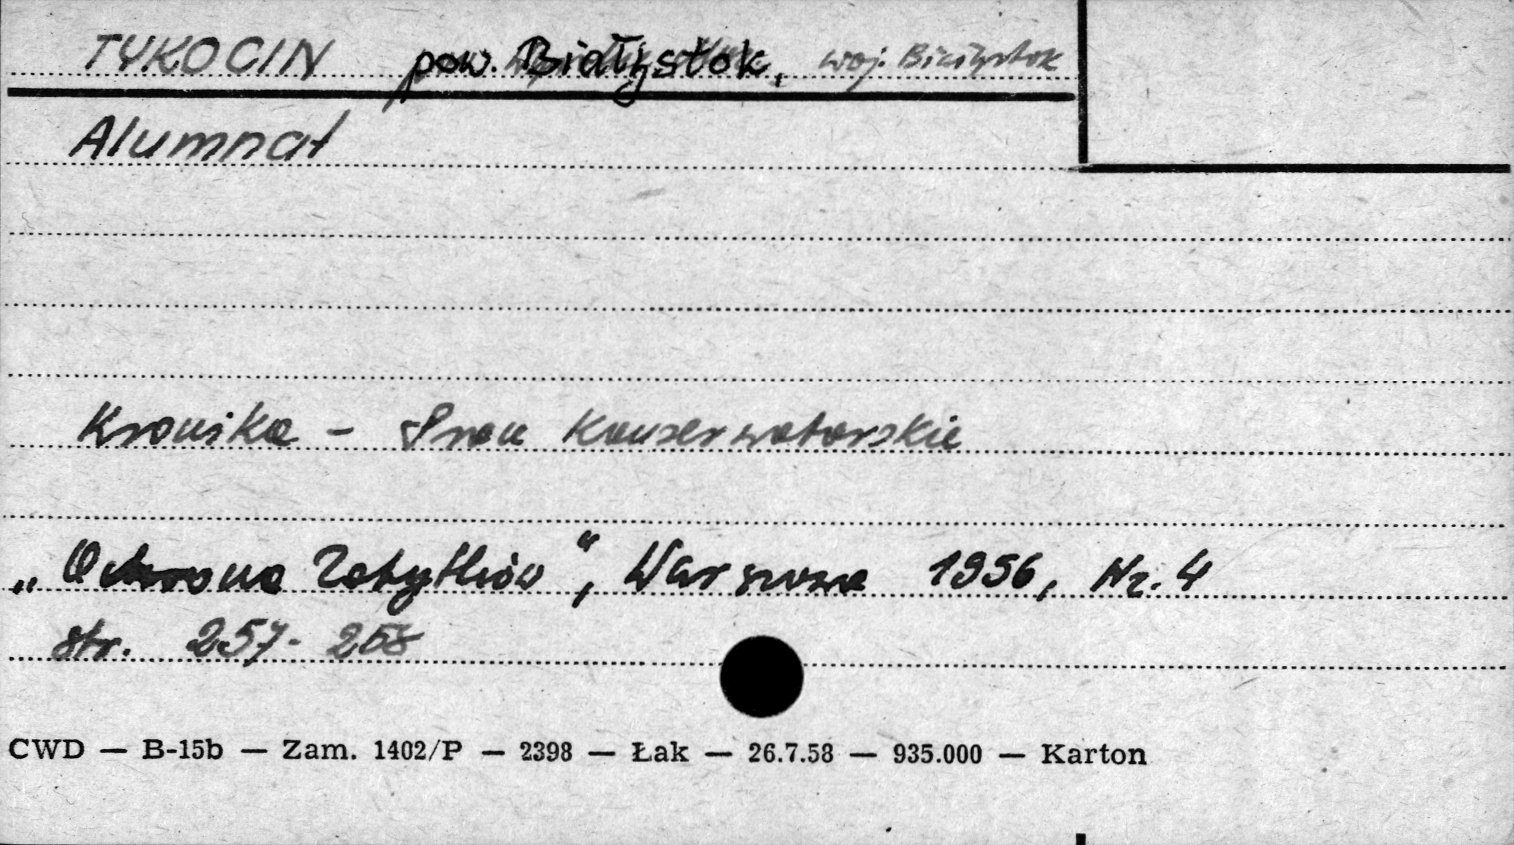 TYKOCIN pow. Białystok, woj. Białystok
Alumnat
Kronika - Prace Konserwatorskie
„Ochrona Zabytków", Warszawa 1956, Nr. 4
str. 257-258
CWD — B-15b — Zam. 1402/P — 2398 — Łak — 26.7.58 — 935.000 — Karton